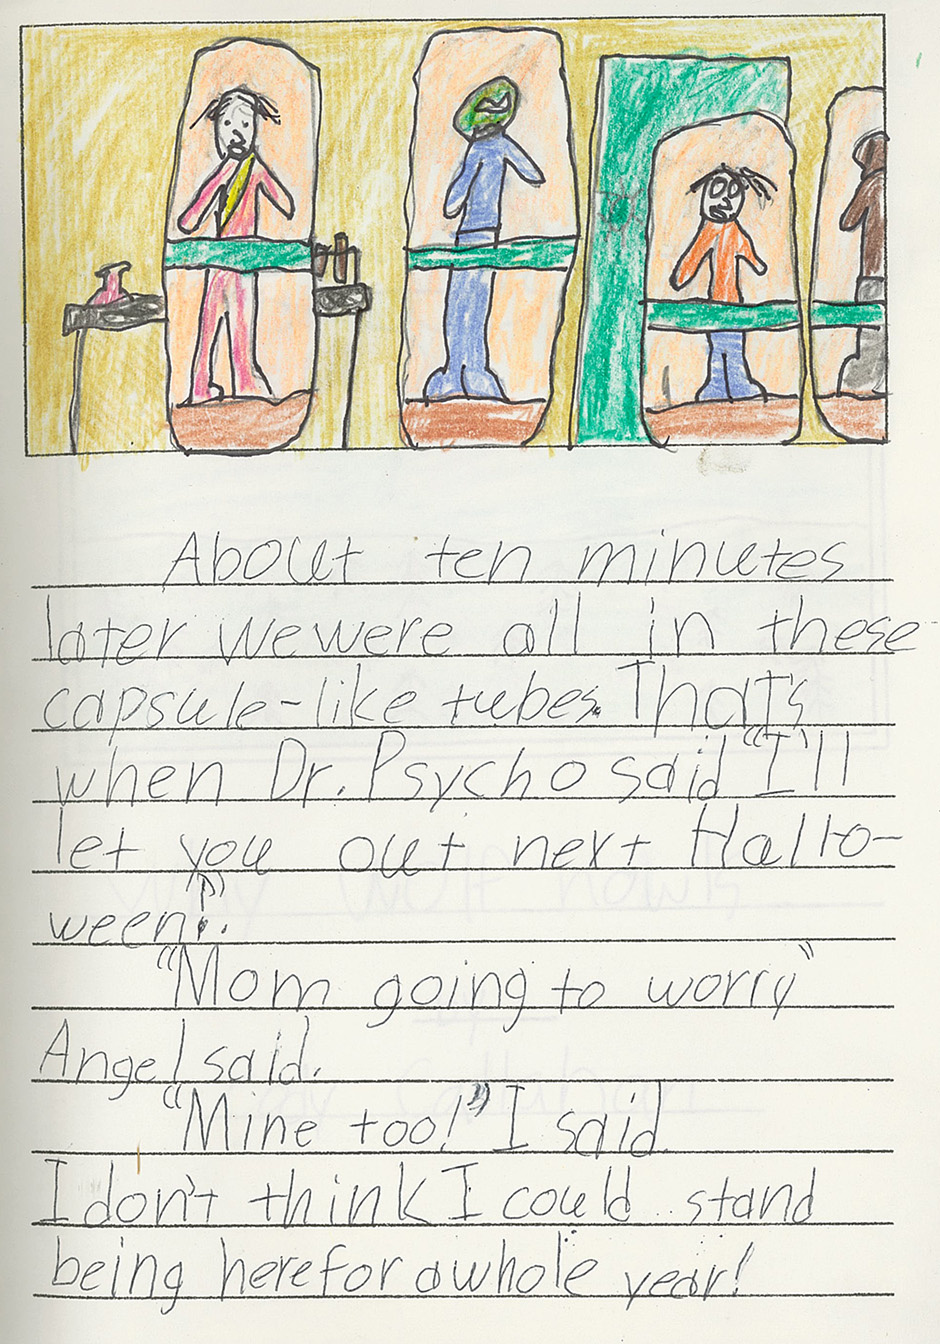 About ten minutes
later we were all in these
capsule-like tubes. That's
when Dr. Psycho said "I'll
let you out next Hallo-
ween!".
"Mom going to worry"
Angel said.
"Mine too!" I said
I don't think I could stand
being here for a whole year!